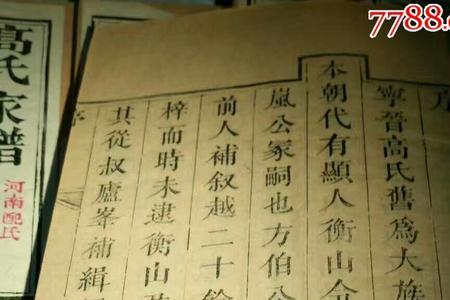 序
寧晉高氏舊為大族
本朝代有顯人衡山令
嵐公冢嗣也方伯公
前人補叙越二十餘
梓而時未逮衡山
其從叔廬峯補緝
序
高氏家譜
河南配氏
7788.c